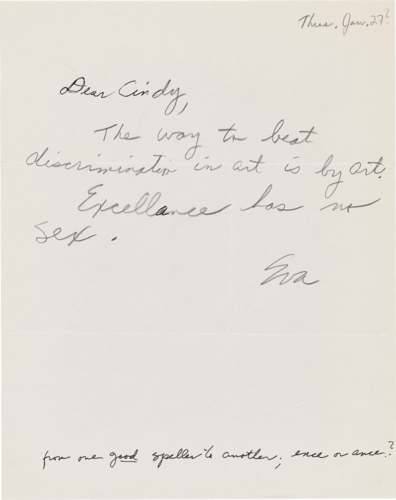 Thurs. Jan. 27?
Dear Cindy,
The way to beat
discrimination in art is by art.
Excellance has no
sex.
Eva
from one good speller to another; ence or ance?